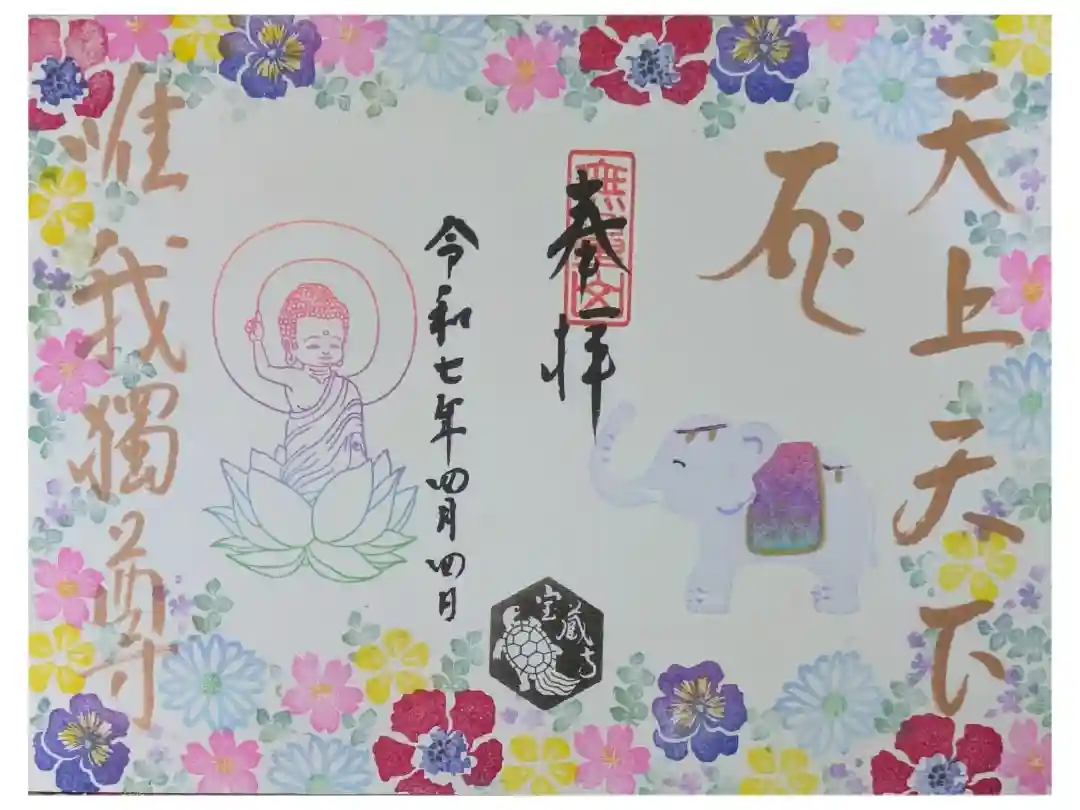 天上天下
唯我獨尊
奉拝
令和七年四月四日
宝蔵寺